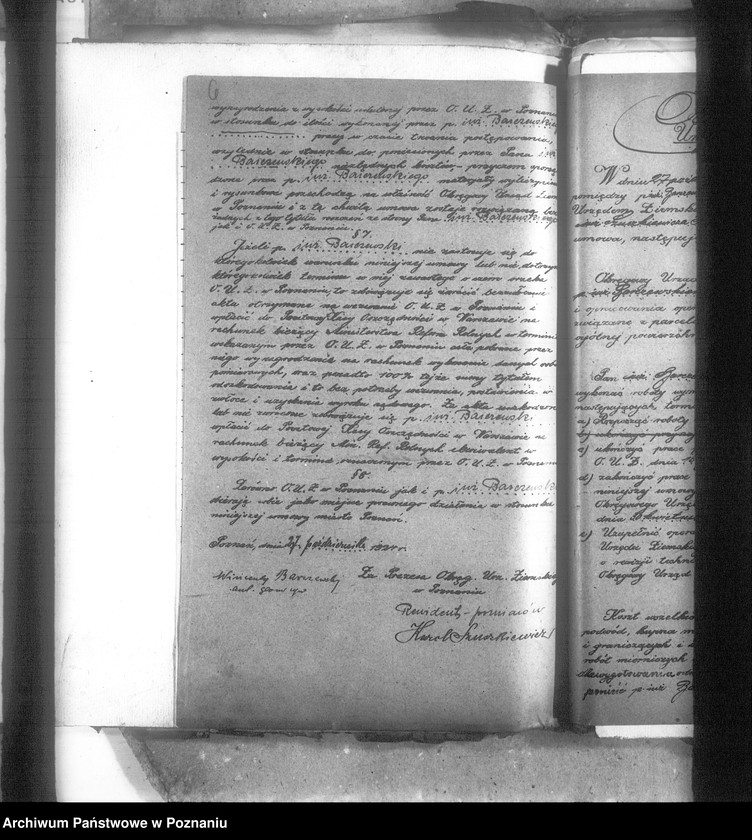 6
wynagrodzenia z wysokości ustalonej przez O. U. Z. w Poznaniu
w stosunku do ilości wykonanej przez p. inż. Barczewskiego
pracy w czasie trwania postępowania,
względnie w stosunku do poniesionych przez Pana inż.
Barczewskiego niezbędnych kosztów, przyczem sporzą-
dzone przez p. inż. Barczewskiego materjały
i rysunkowe przechodzą na własność Okręgowy Urząd Ziem
w Poznaniu i z tą chwilą umowa zostaje rozwiązana bez
żadnych z tego tytułu roszczeń ze strony Pana inż. Barczewskiego
jak i O. U. Z. w Poznaniu.
§ 7.
Jeżeli p. inż. Barczewski nie zastosuje się do
któregokolwiek warunku niniejszej umowy lub nie dotrzyma
któregokolwiek terminu w niej zawartego o czem orzeka
O. U. Z. w Poznaniu, to zobowiązuje się zwrócić bezzwłocznie
akta otrzymane na wezwanie O. U. Z. w Poznaniu i
wpłacić do Pocztowej Kasy Oszczędności w Warszawie na
rachunek bieżący Ministerstwa Reform Rolnych w terminie
wskazanym przez O. U. Z. w Poznaniu całe pobrane przez
niego wynagrodzenie na rachunek wykonania danych robót
pomiarowych, oraz ponadto 100% tejże sumy tytułem
odszkodowania i to bez potrzeby wezwania, postawienia w
zwłoce i uzyskania wyroku sądowego. Za akta uszkodzone
lub nie zwrócone zobowiązuje się p. inż. Barczewski
wpłacić do Pocztowej Kasy Oszczędności w Warszawie na
rachunek bieżący Min. Ref. Rolnych ekwiwalent w
wysokości i terminie oznaczonym przez O. U. Z. w Poznaniu
§ 8.
Zarówno O. U. Z. w Poznaniu jak i p. inż. Barczewski
obierają sobie jako miejsce prawnego działania w stosunku
niniejszej umowy miasto Poznań.
Poznań, dnia 27 października 192 r.
Wincenty Barczewski
Za Prezesa Okręg. Urz. Ziemskiego
w Poznaniu
Karol Szuszkiewicz
W dniu 27 paźdz
pomiędzy p.
Urzędową Ziemsk
inż. Szuszkiewicza
umowa, następuj
Okręgowy Urząd
p. inż. Barczewskie
i opracowania oper
związane z parcela
ogólnej powierzchn
Pan inż. Barcz
wykonać roboty wym
następujących term
a) Rozpocząć roboty
c) ukończyć prace
O. U. Z. dnia
d) zakończyć prace
niniejszej umowy
Okręgowego Urzęd
dnia
e) Uzupełnić opera
Urzędu Ziemskie
o rewizji techni
Okręgowy Urząd
Koszt wszelkich
podwód, kupna m
i graniczących i
robót mierniczych i
ponieść p. inż. Ba
Archiwum Państwowe w Poznaniu